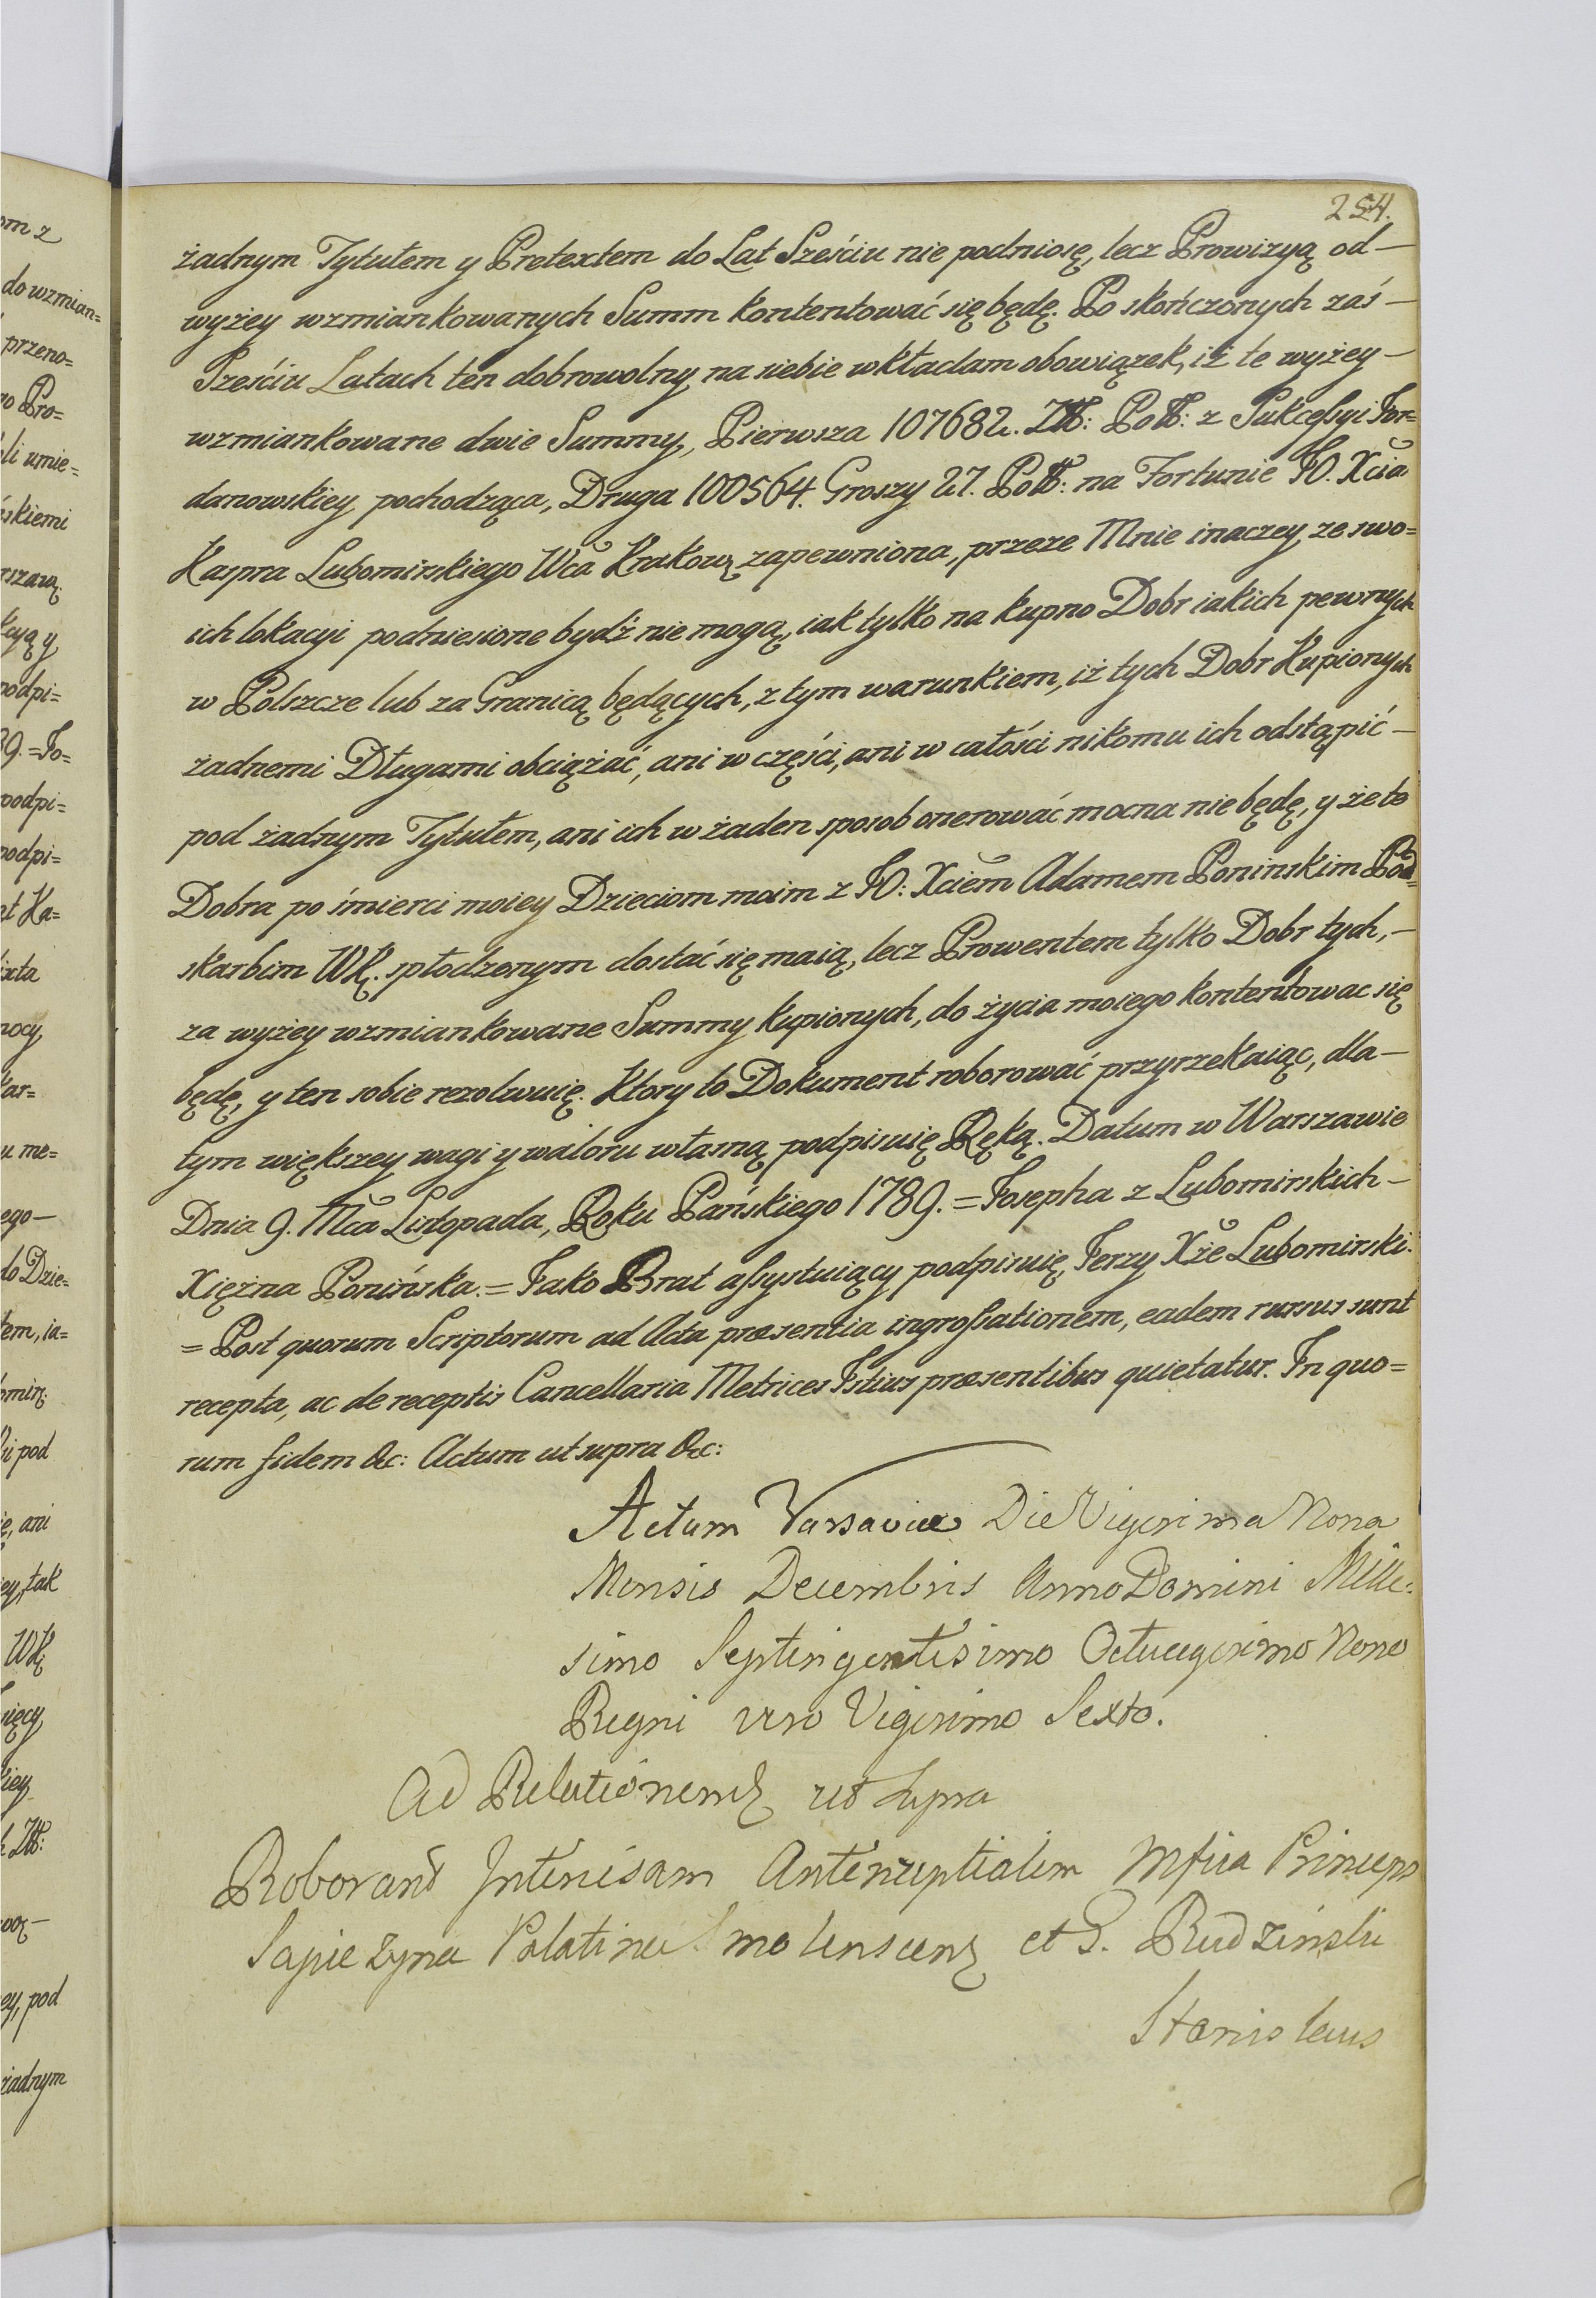 254.
żadnym Tytułem y Pretextem do Lat Sześciu nie podniosę, lecz Prowizyą od—
wyżey wzmiankowanych Summ kontentować się będę. Po skończonych zaś—
Sześciu Latach ten dobrowolny na siebie wkładam obowiązek, iż te wyżey—
wzmiankowane dwie Summy, Pierwsza 107682. Zł: Poł: z Sukceßyi Jor=
danowskiey pochodząca, Druga 100564. Groszy 27. Poł: na Fortunie JO. Xcia
Kaspra Lubomirskiego Wca Krakow: zapewniona, przeze Mnie inaczey ze swo=
ich lokacyi podniesione bydź nie mogą, iak tylko na kupno Dobr iakich pewnych
w Polszcze lub za Granicą będących, z tym warunkiem, iż tych Dobr Kupionych
żadnemi Długami obciążać, ani w części, ani w całości nikomu ich odstąpić—
pod żadnym Tytułem, ani ich w żaden sposob onerować mocna nie będę, y że te
Dobra po śmierci moiey Dzieciom moim z JO: Xciem Adamem Poninskim Pod=
skarbim WK. spłodzonym dostać się maią, lecz Prowentem tylko Dobr tych,—
za wyżey wzmiankowane Summy kupionych, do życia moiego kontentowac się
będę, y ten sobie rezolwuię. Ktory to Dokument roborować przyrzekaiąc, dla—
tym większey wagi y waloru własną podpisuię Ręką. Datum w Warszawie
Dnia 9. Mca Listopada, Roku Pańskiego 1789. = Josepha z Lubomirskich—
Xiężna Ponińska. = Jako Brat aßystuiący podpisuię Jerzy Xże Lubomirski.
= Post quorum Scriptorum ad Acta præsentia ingroßationem, eadem rursus sunt
recepta, ac de receptis Cancellaria Metrices Istius præsentibus quietatur. In quo=
rum fidem &c: Actum ut supra &c:
Actum Varsaviæ Die Vigesima Nona
Mensis Decembris Anno Domini Mille=
simo Septingentesimo Octuagesimo Nono
Regni vero Vigesimo Sexto.
Ad Relationem ut Supra
Roborant Intercisam Antenuptialem Mfica Princeps
Sapieżyna Palatina Smolenscen et G. Rudziński
Stanislaus